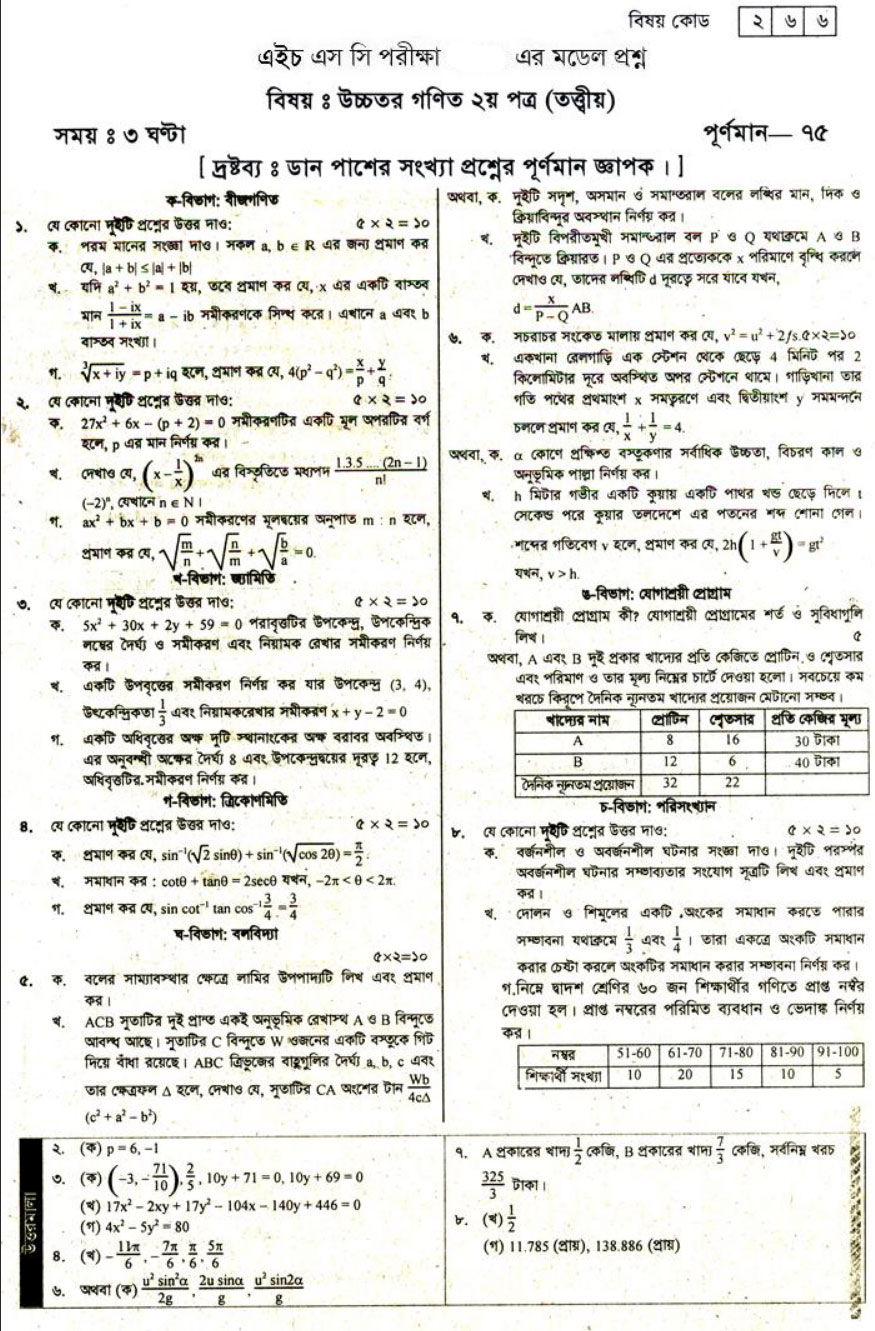 বিষয় কোড ২ ৬ ৬
এইচ এস সি পরীক্ষা এর মডেল প্রশ্ন
বিষয় ঃ উচ্চতর গণিত ২য় পত্র (তত্ত্বীয়)
সময় ঃ ৩ ঘণ্টা পূর্ণমান— ৭৫
[ দ্রষ্টব্য ঃ ডান পাশের সংখ্যা প্রশ্নের পূর্ণমান জ্ঞাপক । ]
ক-বিভাগ: বীজগণিত
১. যে কোনো দুইটি প্রশ্নের উত্তর দাও: ৫ × ২ = ১০
ক. পরম মানের সংজ্ঞা দাও। সকল a, b ∈ R এর জন্য প্রমাণ কর
যে, |a + b| ≤ |a| + |b|
খ. যদি a² + b² = 1 হয়, তবে প্রমাণ কর যে, x এর একটি বাস্তব
মান (1 − ix)/(1 + ix) = a − ib সমীকরণকে সিদ্ধ করে। এখানে a এবং b
বাস্তব সংখ্যা।
গ. ∛(x + iy) = p + iq হলে, প্রমাণ কর যে, 4(p² − q²) = x/p + y/q.
২. যে কোনো দুইটি প্রশ্নের উত্তর দাও: ৫ × ২ = ১০
ক. 27x² + 6x − (p + 2) = 0 সমীকরণটির একটি মূল অপরটির বর্গ
হলে, p এর মান নির্ণয় কর।
খ. দেখাও যে, (x − 1/x)²ⁿ এর বিস্তৃতিতে মধ্যপদ 1.3.5 .... (2n − 1)/n!
(−2)ⁿ, যেখানে n ∈ N।
গ. ax² + bx + b = 0 সমীকরণের মূলদ্বয়ের অনুপাত m : n হলে,
প্রমাণ কর যে, √(m/n) + √(n/m) + √(b/a) = 0.
খ-বিভাগ: জ্যামিতি
৩. যে কোনো দুইটি প্রশ্নের উত্তর দাও: ৫ × ২ = ১০
ক. 5x² + 30x + 2y + 59 = 0 পরাবৃত্তটির উপকেন্দ্র, উপকেন্দ্রিক
লম্বের দৈর্ঘ্য ও সমীকরণ এবং নিয়ামক রেখার সমীকরণ নির্ণয়
কর।
খ. একটি উপবৃত্তের সমীকরণ নির্ণয় কর যার উপকেন্দ্র (3, 4),
উৎকেন্দ্রিকতা 1/3 এবং নিয়ামকরেখার সমীকরণ x + y − 2 = 0
গ. একটি অধিবৃত্তের অক্ষ দুটি স্থানাংকের অক্ষ বরাবর অবস্থিত।
এর অনুবন্ধী অক্ষের দৈর্ঘ্য 8 এবং উপকেন্দ্রদ্বয়ের দূরত্ব 12 হলে,
অধিবৃত্তটির সমীকরণ নির্ণয় কর।
গ-বিভাগ: ত্রিকোণমিতি
৪. যে কোনো দুইটি প্রশ্নের উত্তর দাও: ৫ × ২ = ১০
ক. প্রমাণ কর যে, sin⁻¹(√2 sinθ) + sin⁻¹(√cos 2θ) = π/2.
খ. সমাধান কর : cotθ + tanθ = 2secθ যখন, −2π < θ < 2π.
গ. প্রমাণ কর যে, sin cot⁻¹ tan cos⁻¹ 3/4 = 3/4
ঘ-বিভাগ: বলবিদ্যা
৫×২=১০
৫. ক. বলের সাম্যাবস্থার ক্ষেত্রে লামির উপপাদ্যটি লিখ এবং প্রমাণ
কর।
খ. ACB সুতাটির দুই প্রান্ত একই অনুভূমিক রেখাস্থ A ও B বিন্দুতে
আবদ্ধ আছে। সুতাটির C বিন্দুতে W ওজনের একটি বস্তুকে গিট
দিয়ে বাঁধা রয়েছে। ABC ত্রিভুজের বাহুগুলির দৈর্ঘ্য a, b, c এবং
তার ক্ষেত্রফল Δ হলে, দেখাও যে, সুতাটির CA অংশের টান Wb/4cΔ
(c² + a² − b²)
অথবা, ক. দুইটি সদৃশ, অসমান ও সমান্তরাল বলের লব্ধির মান, দিক ও
ক্রিয়াবিন্দুর অবস্থান নির্ণয় কর।
খ. দুইটি বিপরীতমুখী সমান্তরাল বল P ও Q যথাক্রমে A ও B
বিন্দুতে ক্রিয়ারত। P ও Q এর প্রত্যেককে x পরিমাণে বৃদ্ধি করলে
দেখাও যে, তাদের লব্ধিটি d দূরত্বে সরে যাবে যখন,
d = x/(P − Q) AB.
৬. ক. সচরাচর সংকেত মালায় প্রমাণ কর যে, v² = u² + 2fs.৫×২=১০
খ. একখানা রেলগাড়ি এক স্টেশন থেকে ছেড়ে 4 মিনিট পর 2
কিলোমিটার দূরে অবস্থিত অপর স্টেশনে থামে। গাড়িখানা তার
গতি পথের প্রথমাংশ x সমত্বরণে এবং দ্বিতীয়াংশ y সমমন্দনে
চললে প্রমাণ কর যে, 1/x + 1/y = 4.
অথবা, ক. α কোণে প্রক্ষিপ্ত বস্তুকণার সর্বাধিক উচ্চতা, বিচরণ কাল ও
অনুভূমিক পাল্লা নির্ণয় কর।
খ. h মিটার গভীর একটি কুয়ায় একটি পাথর খন্ড ছেড়ে দিলে t
সেকেন্ড পরে কুয়ার তলদেশে এর পতনের শব্দ শোনা গেল।
শব্দের গতিবেগ v হলে, প্রমাণ কর যে, 2h(1 + gt/v) = gt²
যখন, v > h.
ঙ-বিভাগ: যোগাশ্রয়ী প্রোগ্রাম
৭. ক. যোগাশ্রয়ী প্রোগ্রাম কী? যোগাশ্রয়ী প্রোগ্রামের শর্ত ও সুবিধাগুলি
লিখ। ৫
অথবা, A এবং B দুই প্রকার খাদ্যের প্রতি কেজিতে প্রোটিন ও শ্বেতসার
এবং পরিমাণ ও তার মূল্য নিম্নের চার্টে দেওয়া হলো। সবচেয়ে কম
খরচে কিরূপে দৈনিক ন্যূনতম খাদ্যের প্রয়োজন মেটানো সম্ভব।
খাদ্যের নাম প্রোটিন শ্বেতসার প্রতি কেজির মূল্য
A 8 16 30 টাকা
B 12 6 40 টাকা
দৈনিক ন্যূনতম প্রয়োজন 32 22
চ-বিভাগ: পরিসংখ্যান
৮. যে কোনো দুইটি প্রশ্নের উত্তর দাও: ৫ × ২ = ১০
ক. বর্জনশীল ও অবর্জনশীল ঘটনার সংজ্ঞা দাও। দুইটি পরস্পর
অবর্জনশীল ঘটনার সম্ভাব্যতার সংযোগ সূত্রটি লিখ এবং প্রমাণ
কর।
খ. দোলন ও শিমুলের একটি অংকের সমাধান করতে পারার
সম্ভাবনা যথাক্রমে 1/3 এবং 1/4। তারা একত্রে অংকটি সমাধান
করার চেষ্টা করলে অংকটির সমাধান করার সম্ভাবনা নির্ণয় কর।
গ.নিম্নে দ্বাদশ শ্রেণির ৬০ জন শিক্ষার্থীর গণিতে প্রাপ্ত নম্বর
দেওয়া হল। প্রাপ্ত নম্বরের পরিমিত ব্যবধান ও ভেদাঙ্ক নির্ণয়
কর।
নম্বর 51-60 61-70 71-80 81-90 91-100
শিক্ষার্থী সংখ্যা 10 20 15 10 5
উত্তরমালা
২. (ক) p = 6, −1
৩. (ক) (−3, −71/10), 2/5, 10y + 71 = 0, 10y + 69 = 0
(খ) 17x² − 2xy + 17y² − 104x − 140y + 446 = 0
(গ) 4x² − 5y² = 80
৪. (খ) −11π/6, −7π/6, π/6, 5π/6
৬. অথবা (ক) u² sin²α/2g, 2u sinα/g, u² sin2α/g
৭. A প্রকারের খাদ্য 1/2 কেজি, B প্রকারের খাদ্য 7/3 কেজি, সর্বনিম্ন খরচ
325/3 টাকা।
৮. (খ) 1/2
(গ) 11.785 (প্রায়), 138.886 (প্রায়)